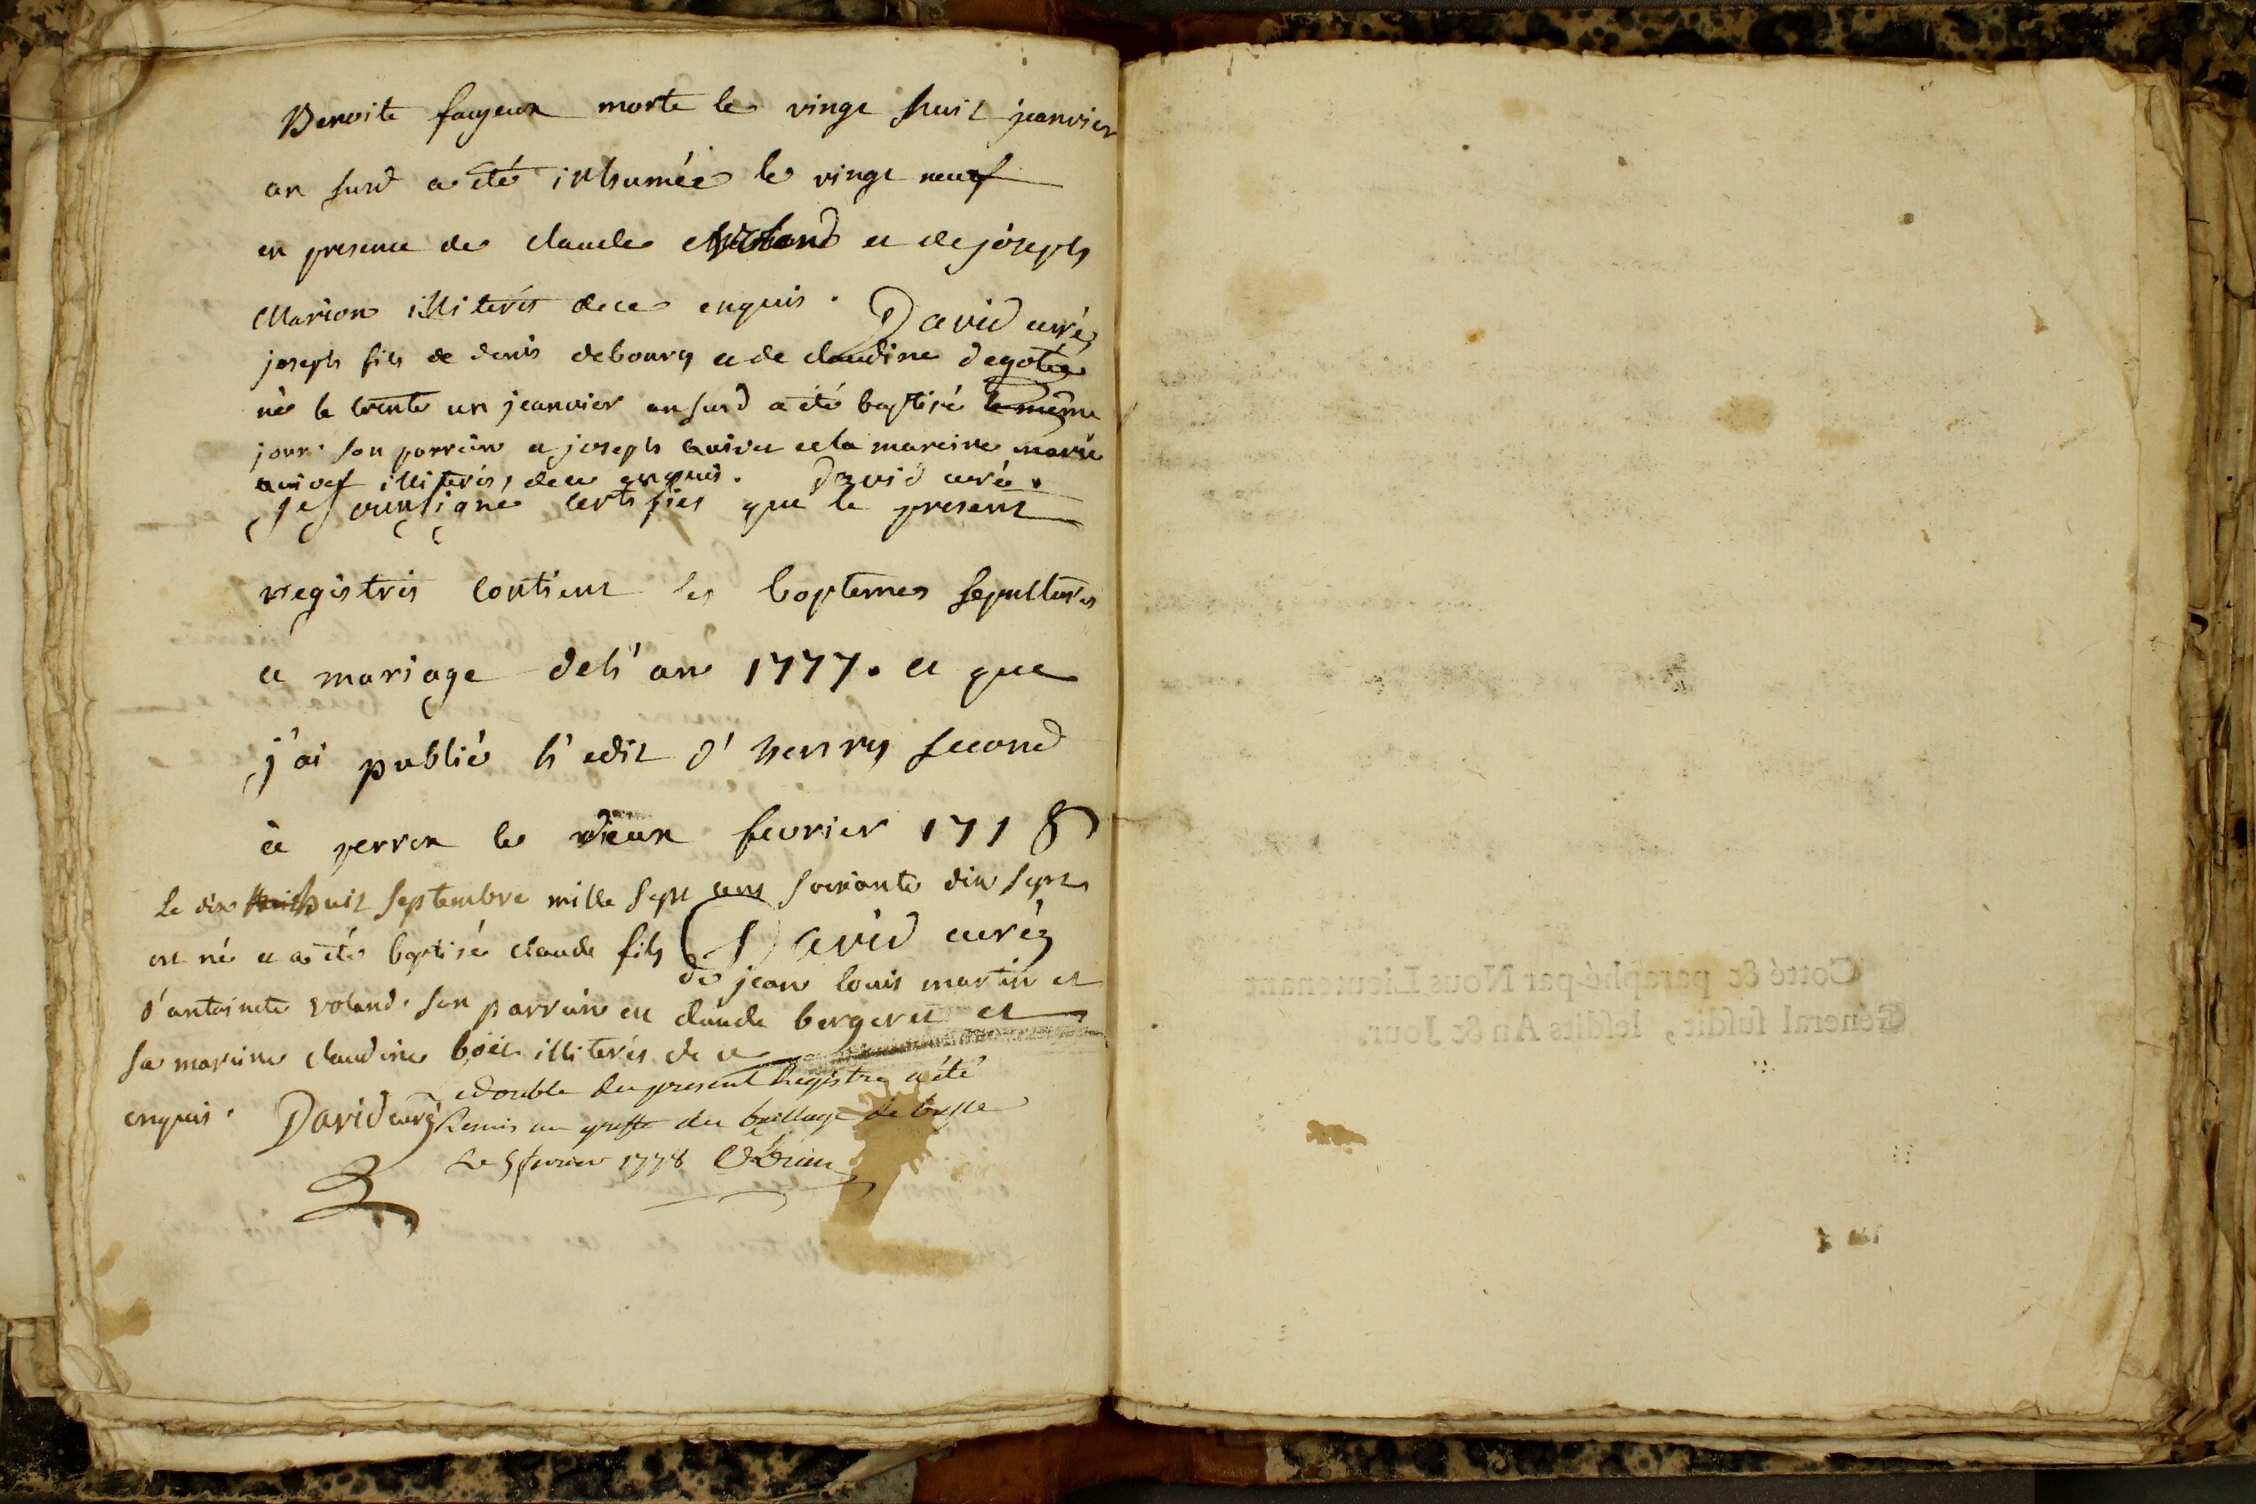 Benoite fayeux morte le vingt huit janvier
an susd a été inhumée le vingt neuf
en presence de claude et de joseph
Marion illiterés dece enquis. David curé
joseph fils de denis debourg et de claudine degotég
né le trente un janvier an susd a été baptisé le même
jour. son parrein a joseph et la mareine marie
illiterés, dece enquis. David curé.
je sousigné certifies que le present
registris contient les baptemes sepultures
et mariage deh' an 1777. et que
j'ai publié h' edit d' henry second
à perron le deux fevrier 1778
Le dix huit septembre mille sept cens soixante dix sept
est né et a été baptisé claude fils David curé
de jean louis martin et
d'antoinete voland. son parrain est claude bergeret et
sa mareine claudine boït illiterés de ce
enquis. David curé
double du present Registre a été
Remis au greffe du baillage de
Le 5 fevrier 1778
Cotté & paraphé par Nous Lieutenant
Général susdit, lesdits An & Jour.